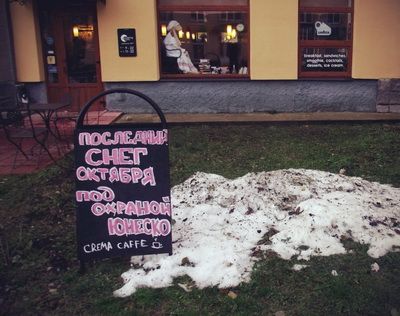 ПОСЛЕДНИЙ
СНЕГ
ОКТЯБРЯ
ПОД
ОХРАНОЙ
ЮНЕСКО
CREMA CAFFE
breakfast, sandwiches,
smoothie, cocktails,
desserts, ice cream.